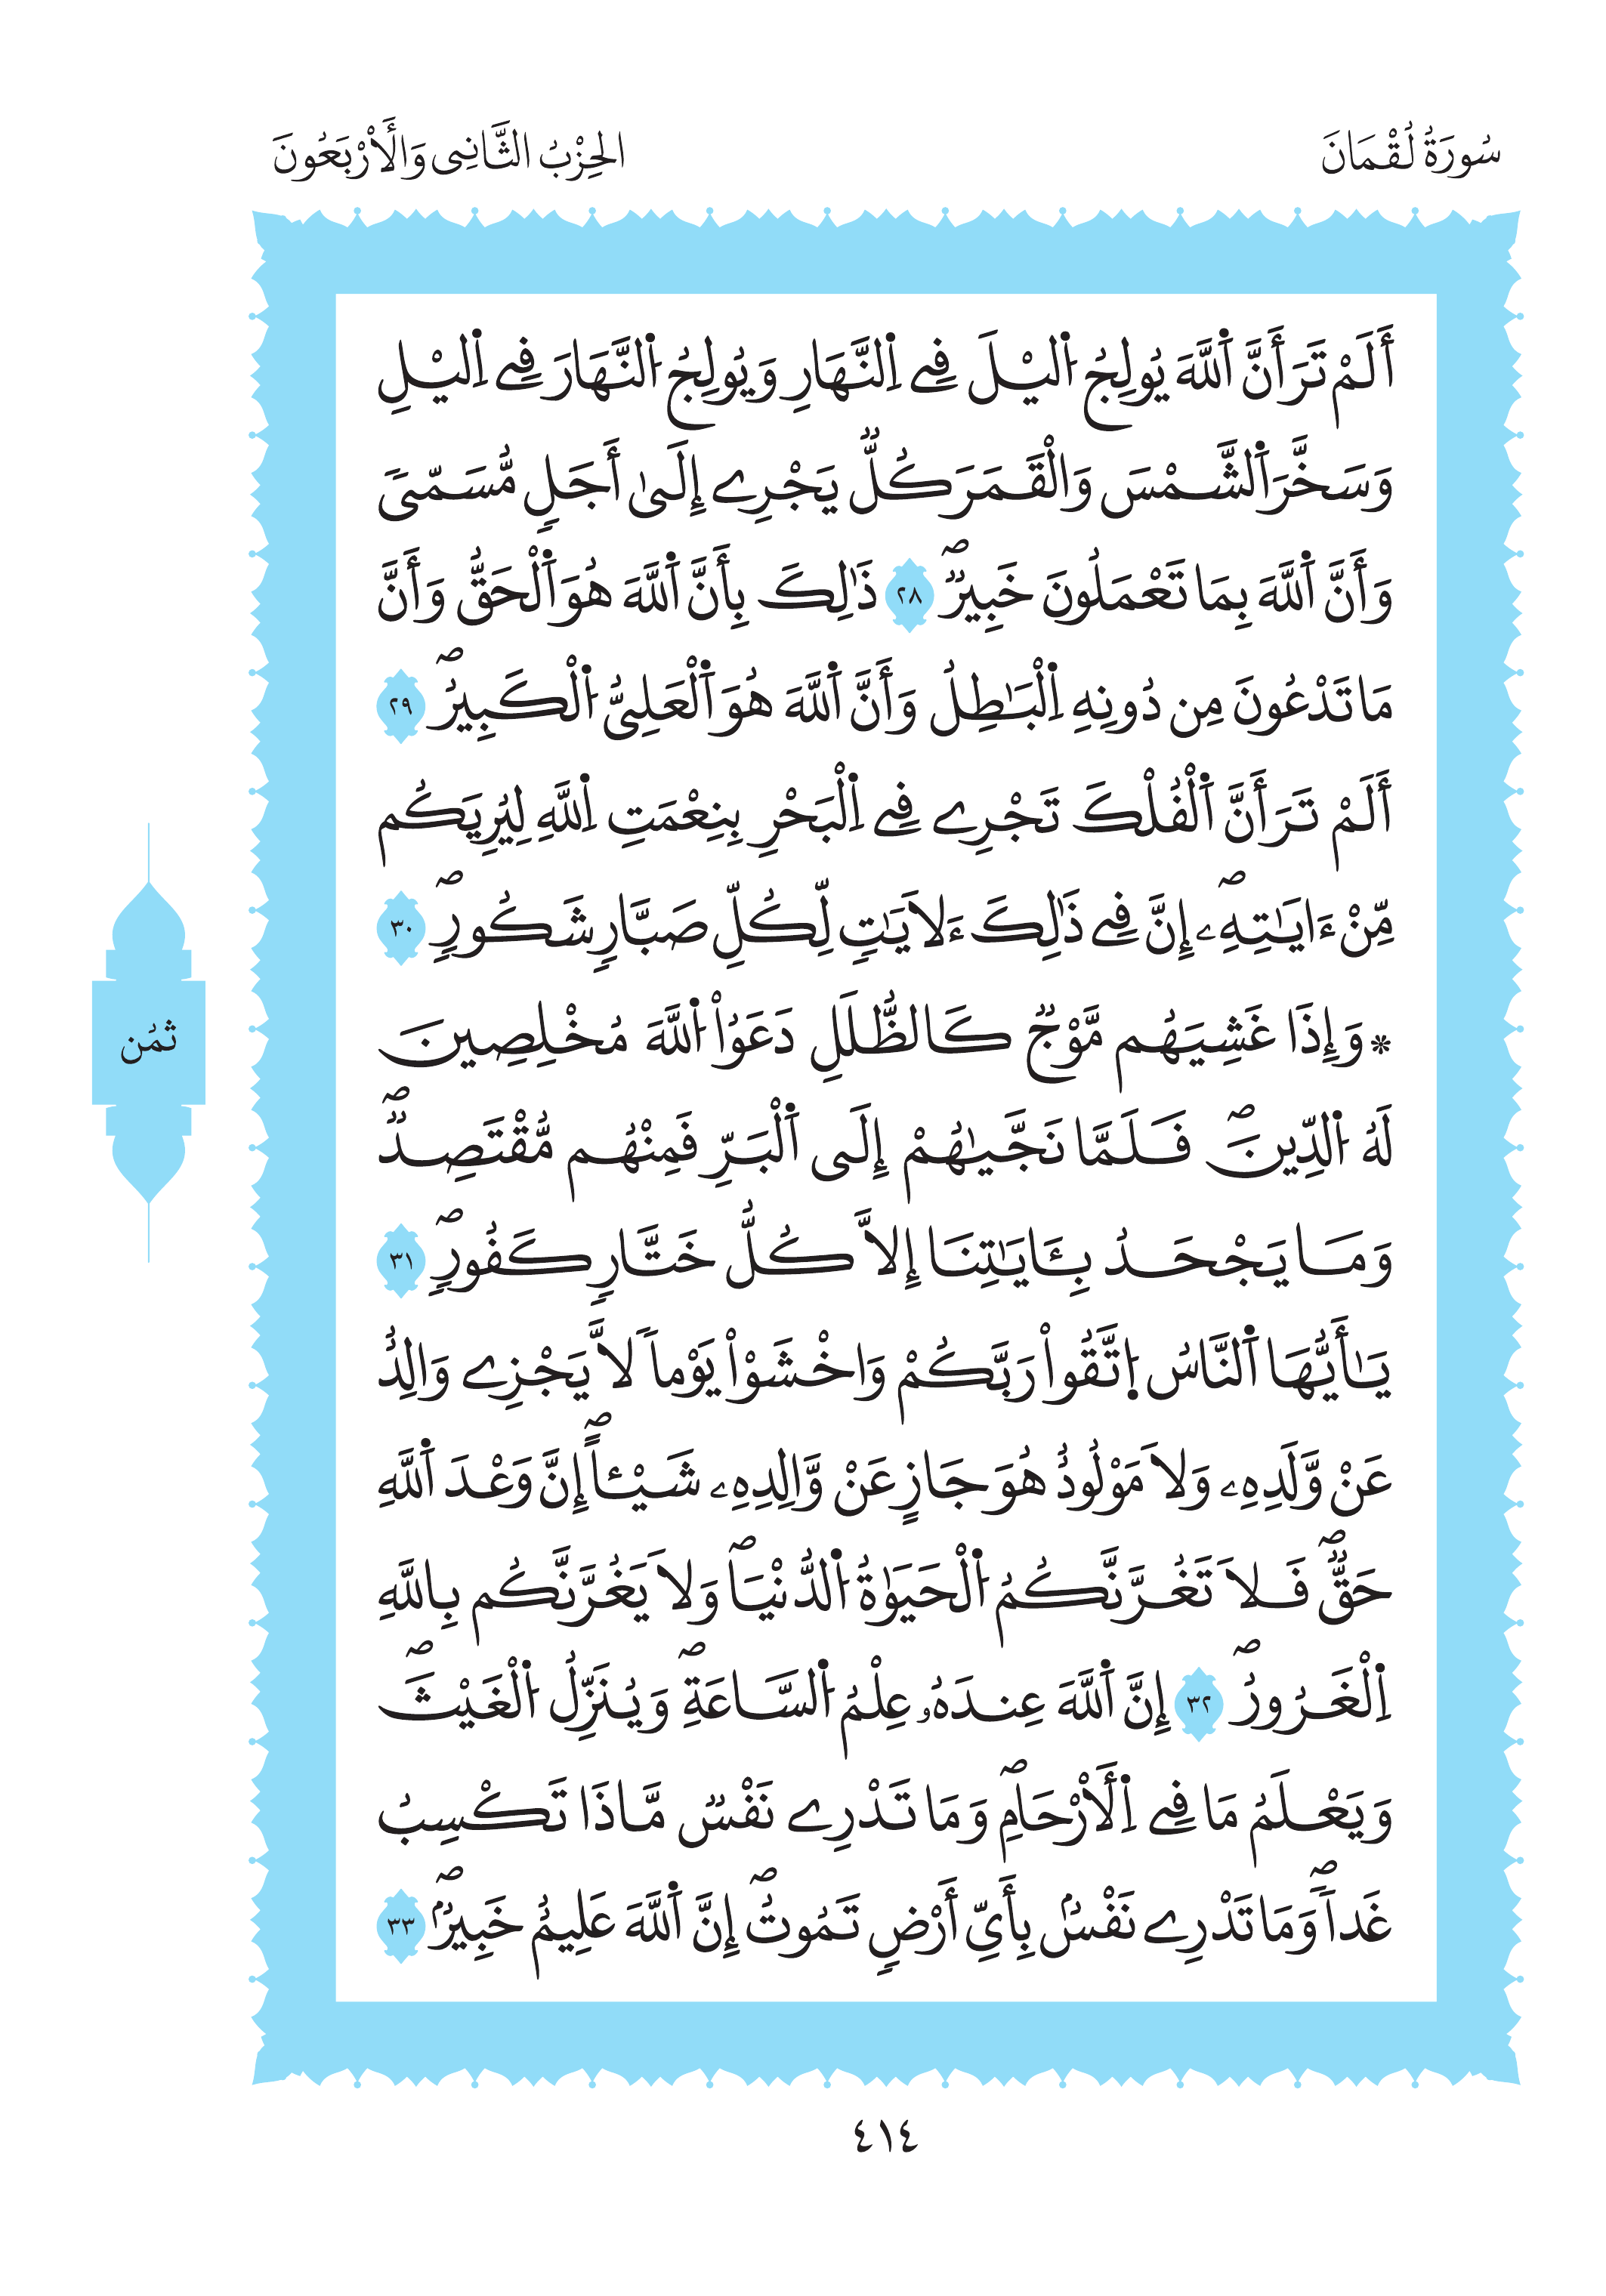 سُورَةُ لُقْمَانَ
الحِزْبُ الثَّانِى وَالَأرْبَعُونَ
أَلَمْ تَرَ أَنَّ اَ۬للَّهَ يُولِجُ اُ۬ليْلَ فِے اِ۬لنَّهَارِ وَيُولِجُ اُ۬لنَّهَارَ فِے اِ۬ليْلِ
وَسَخَّرَ اَ۬لشَّمْسَ وَالْقَمَرَ كُلّٞ يَجْرِے إِلَىٰ أَجَلٖ مُّسَمّىٗ
وَأَنَّ اَ۬للَّهَ بِمَا تَعْمَلُونَ خَبِيرٞۖ ٢٨ ذَٰلِكَ بِأَنَّ اَ۬للَّهَ هُوَ اَ۬لْحَقُّ وَأَنَّ
مَا تَدْعُونَ مِن دُونِهِ اِ۬لْبَٰطِلُ وَأَنَّ اَ۬للَّهَ هُوَ اَ۬لْعَلِىُّ اُ۬لْكَبِيرُۖ ٢٩
أَلَمْ تَرَ أَنَّ اَ۬لْفُلْكَ تَجْرِے فِے اِ۬لْبَحْرِ بِنِعْمَتِ اِ۬للَّهِ لِيُرِيَكُم
مِّنْ ءَايَٰتِهِۦۖ إِنَّ فِے ذَٰلِكَ ءَلَايَٰتٖ لِّكُلِّ صَبَّارٖ شَكُورٖۖ ٣٠
* وَإِذَا غَشِيَهُم مَّوْجٞ كَالظُّلَلِ دَعَوُاْ اُ۬للَّهَ مُخْلِصِينَ
لَهُ اُ۬لدِّينَۖ فَلَمَّا نَجَّيٰهُمْ إِلَى اَ۬لْبَرِّ فَمِنْهُم مُّقْتَصِدٞۖ
وَمَا يَجْحَدُ بِـَٔايَٰتِنَا إِلاَّ كُلُّ خَتَّارٖ كَفُورٖۖ ٣١
يَٰأَيُّهَا اَ۬لنَّاسُ اُ۪تَّقُواْ رَبَّكُمْ وَاخْشَوْاْ يَوْماٗ لاَّ يَجْزِے وَالِدٌ
عَنْ وَّلَدِهِۦ وَلاَ مَوْلُودٌ هُوَ جَازٍ عَنْ وَّالِدِهِۦ شَيْـٔاًۖ إِنَّ وَعْدَ اَ۬للَّهِ
حَقّٞۖ فَلاَ تَغُرَّنَّكُمُ اُ۬لْحَيَوٰةُ اُ۬لدُّنْيَاۖ وَلاَ يَغُرَّنَّكُم بِاللَّهِ
اِ۬لْغَرُورُۖ ٣٢ إِنَّ اَ۬للَّهَ عِندَهُۥ عِلْمُ اُ۬لسَّاعَةِۖ وَيُنَزِّلُ اُ۬لْغَيْثَۖ
وَيَعْلَمُ مَا فِے اِ۬لَأرْحَامِۖ وَمَا تَدْرِے نَفْسٞ مَّاذَا تَكْسِبُ
غَداٗۖ وَمَا تَدْرِے نَفْسُۢ بِأَيِّ أَرْضٖ تَمُوتُۖ إِنَّ اَ۬للَّهَ عَلِيمٌ خَبِيرُۢۖ ٣٣
ثمُن
٤١٤